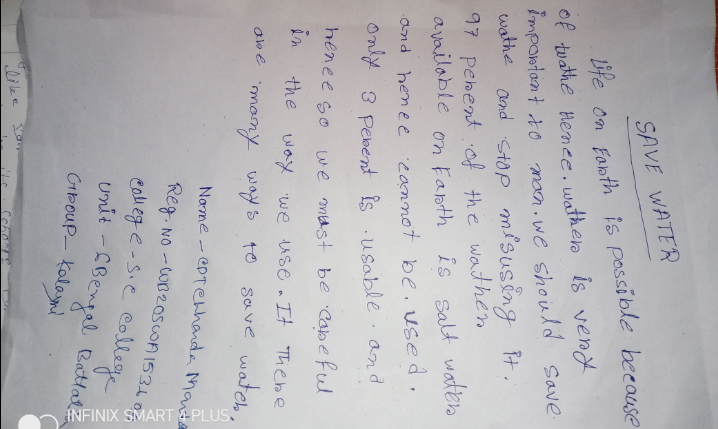 SAVE WATER
Life on Earth is possible because
of wathe Hence. wather is very
important to man. we should save
wathe and stop misusing it.
97 percent of the wather
available on Earth is salt water
and hence cannot be. used.
only 3 percent is usable. and
hence so we must be careful
in the way we use. It There
are many ways to save water.
Name - CDT
Reg. NO -
college - S.C college
unit - 5 Bengal
Group - Kalayni
like
INFINIX SMART 4 PLUS